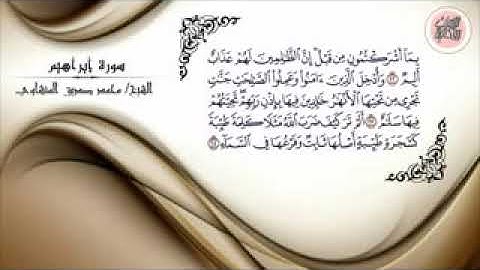 سورة إبراهيم
الشيخ/ محمد صديق المنشاوي
بِمَا أَشْرَكْتُمُونِ مِن قَبْلُ إِنَّ الظَّٰلِمِينَ لَهُمْ عَذَابٌ
أَلِيمٌ ۝ وَأُدْخِلَ الَّذِينَ ءَامَنُوا وَعَمِلُوا الصَّٰلِحَٰتِ جَنَّٰتٍ
تَجْرِي مِن تَحْتِهَا الْأَنْهَٰرُ خَٰلِدِينَ فِيهَا بِإِذْنِ رَبِّهِمْ تَحِيَّتُهُمْ
فِيهَا سَلَٰمٌ ۝ أَلَمْ تَرَ كَيْفَ ضَرَبَ اللَّهُ مَثَلًا كَلِمَةً طَيِّبَةً
كَشَجَرَةٍ طَيِّبَةٍ أَصْلُهَا ثَابِتٌ وَفَرْعُهَا فِي السَّمَاءِ ۝